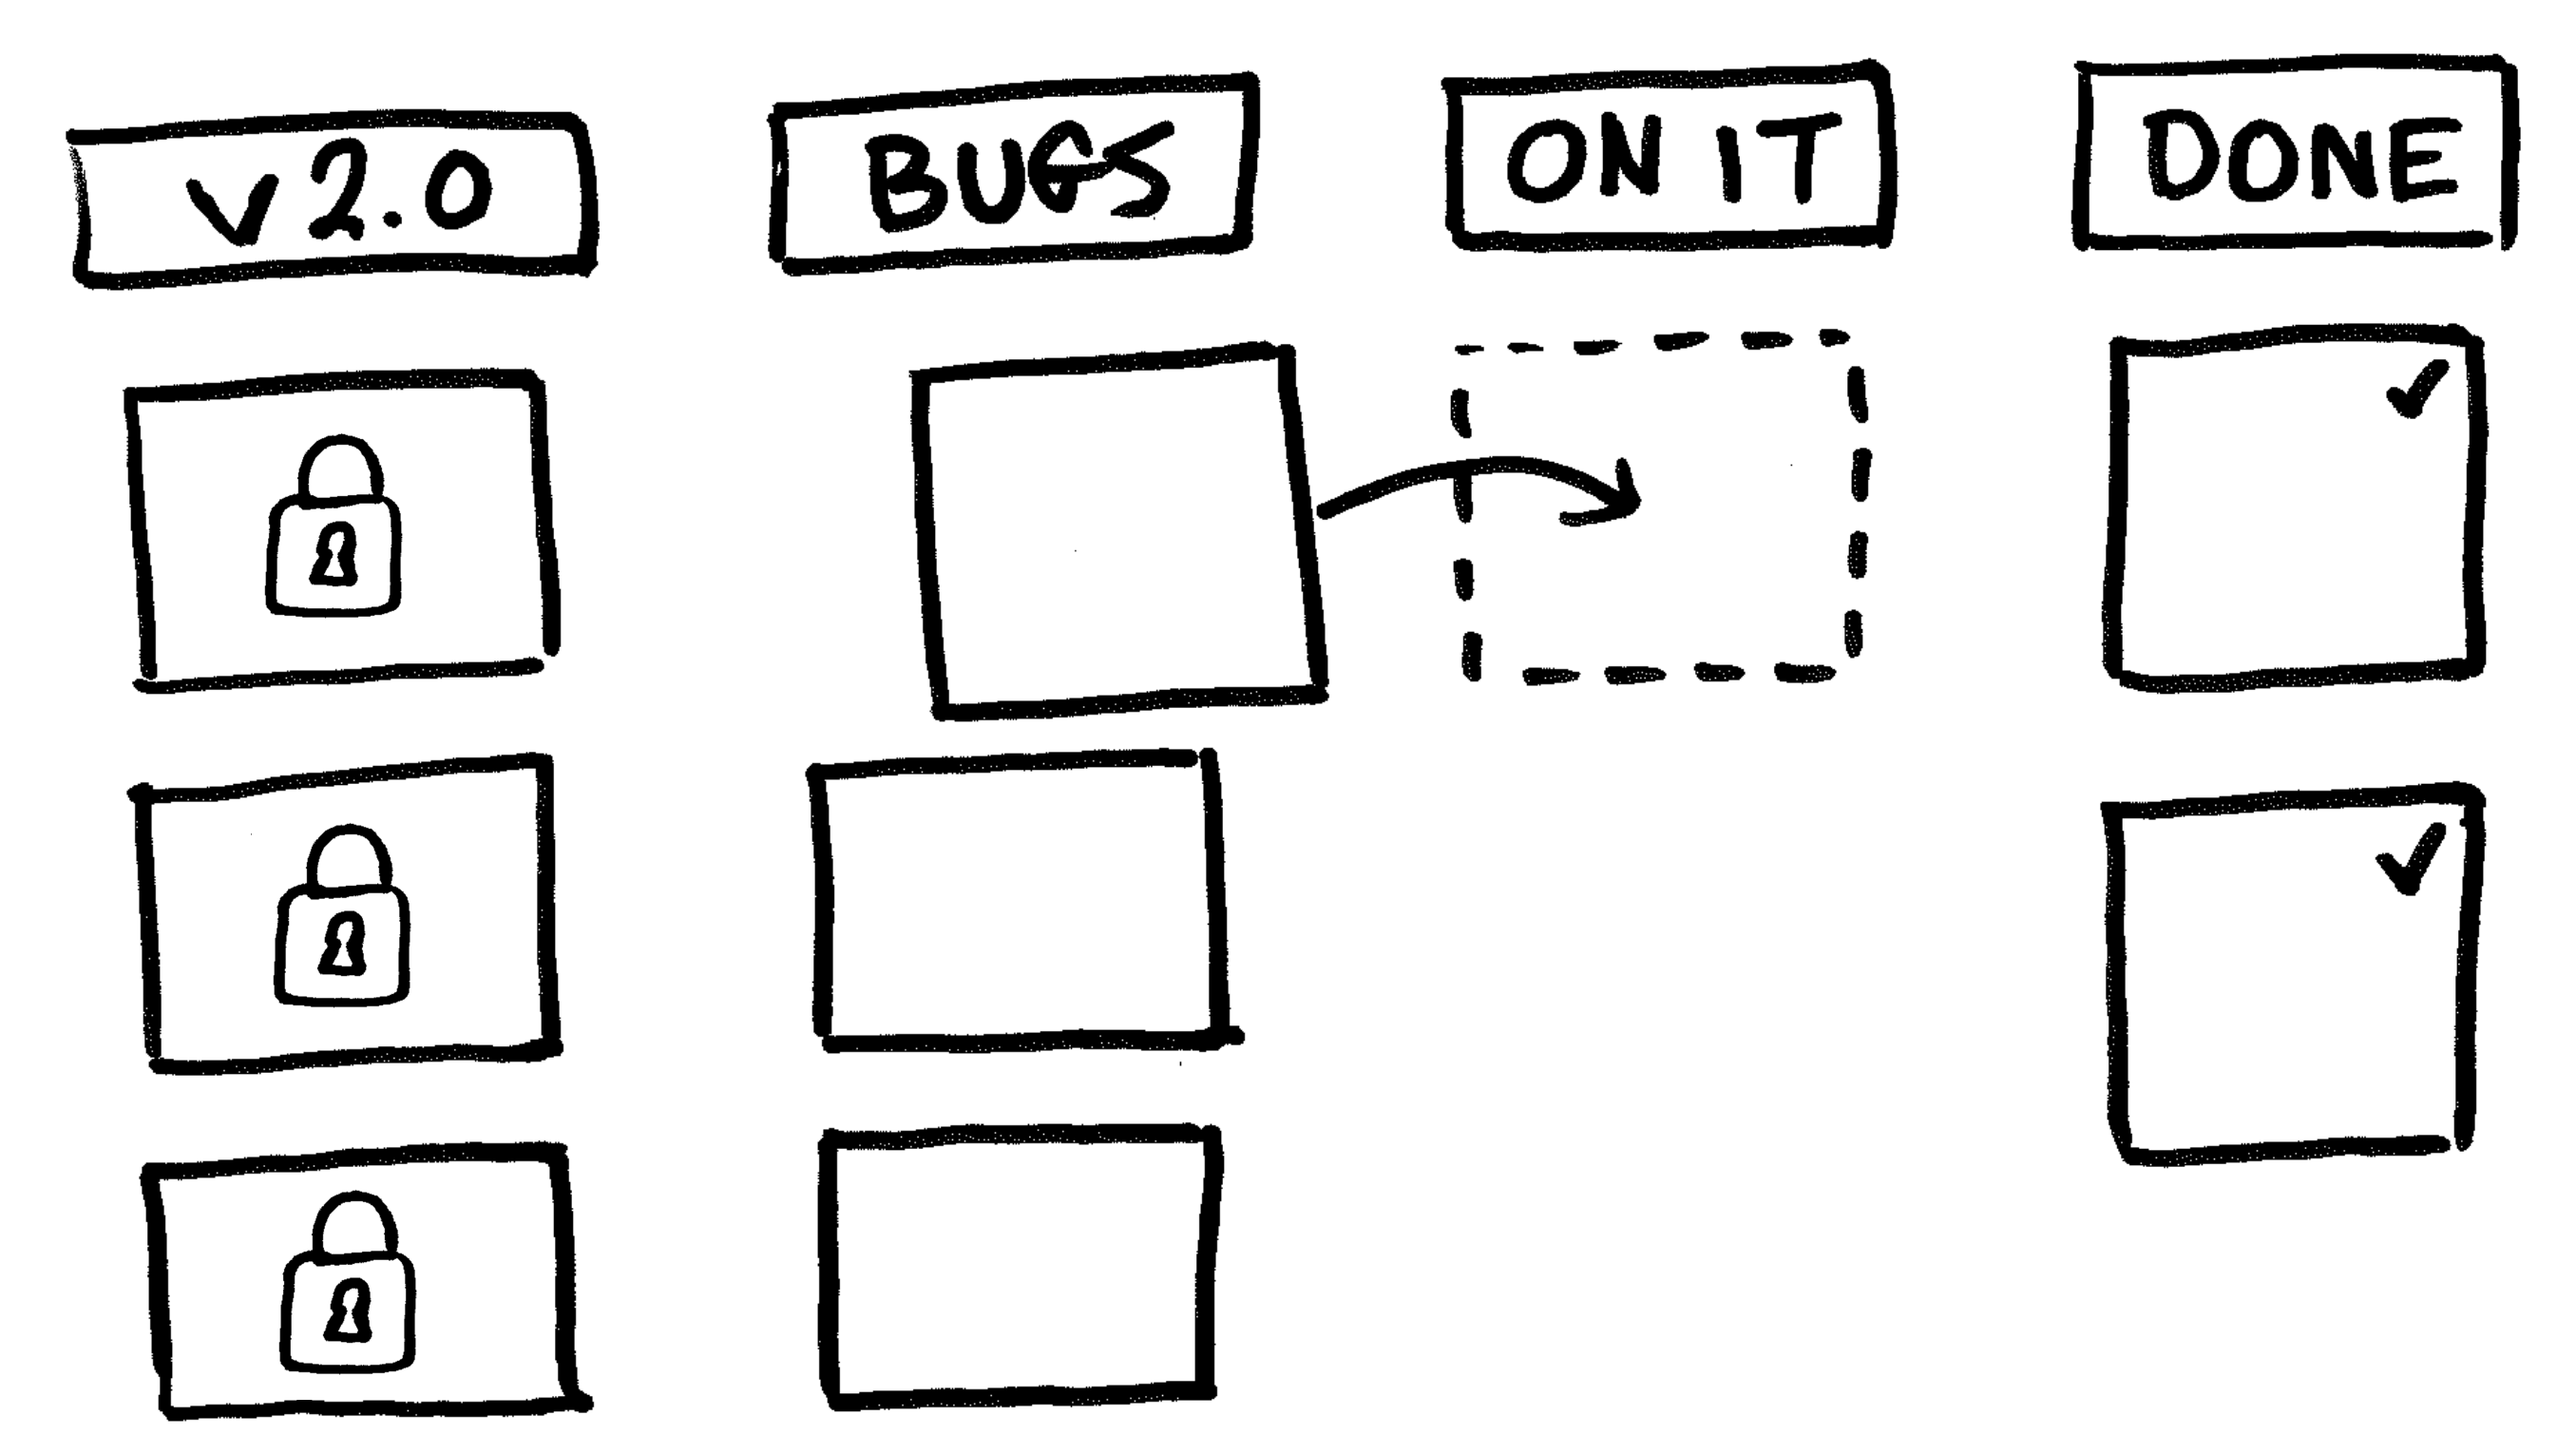 v 2.0
BUGS
ON IT
DONE